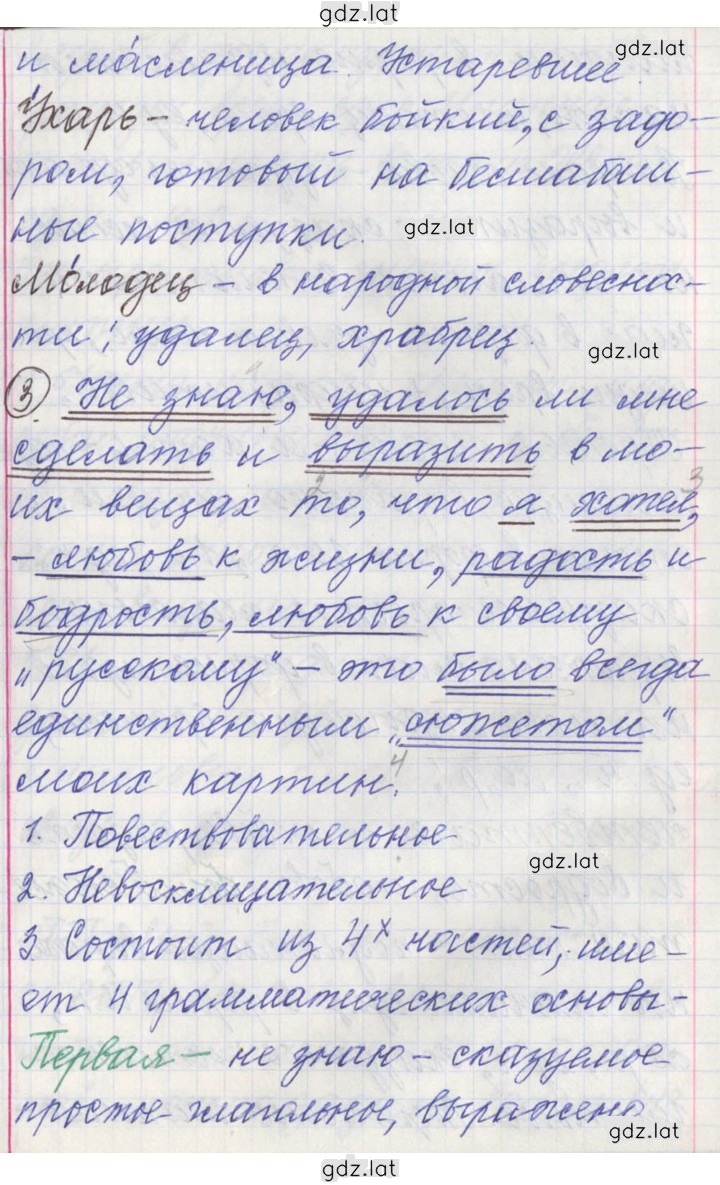 gdz.lat
и ма́сленица. Устаревшее.
gdz.lat
У́харь – человек бойкий, с задо-
ром, готовый на бесшабаш-
ные поступки.
gdz.lat
Мо́лодец – в народной словеснос-
ти: удалец, храбрец.
gdz.lat
③ Не знаю, удалось ли мне
сделать и выразить в мо-
их вещах то, что я хотел,
– любовь к жизни, радость и
бодрость, любовь к своему
„русскому“ – это было всегда
единственным „сюжетом“
моих картин.
1. Повествовательное
gdz.lat
2. Невосклицательное
3. Состоит из 4х частей, име-
ет 4 грамматических основы-
Первая – не знаю – сказуемое
простое глагольное, выражено
gdz.lat
gdz.lat